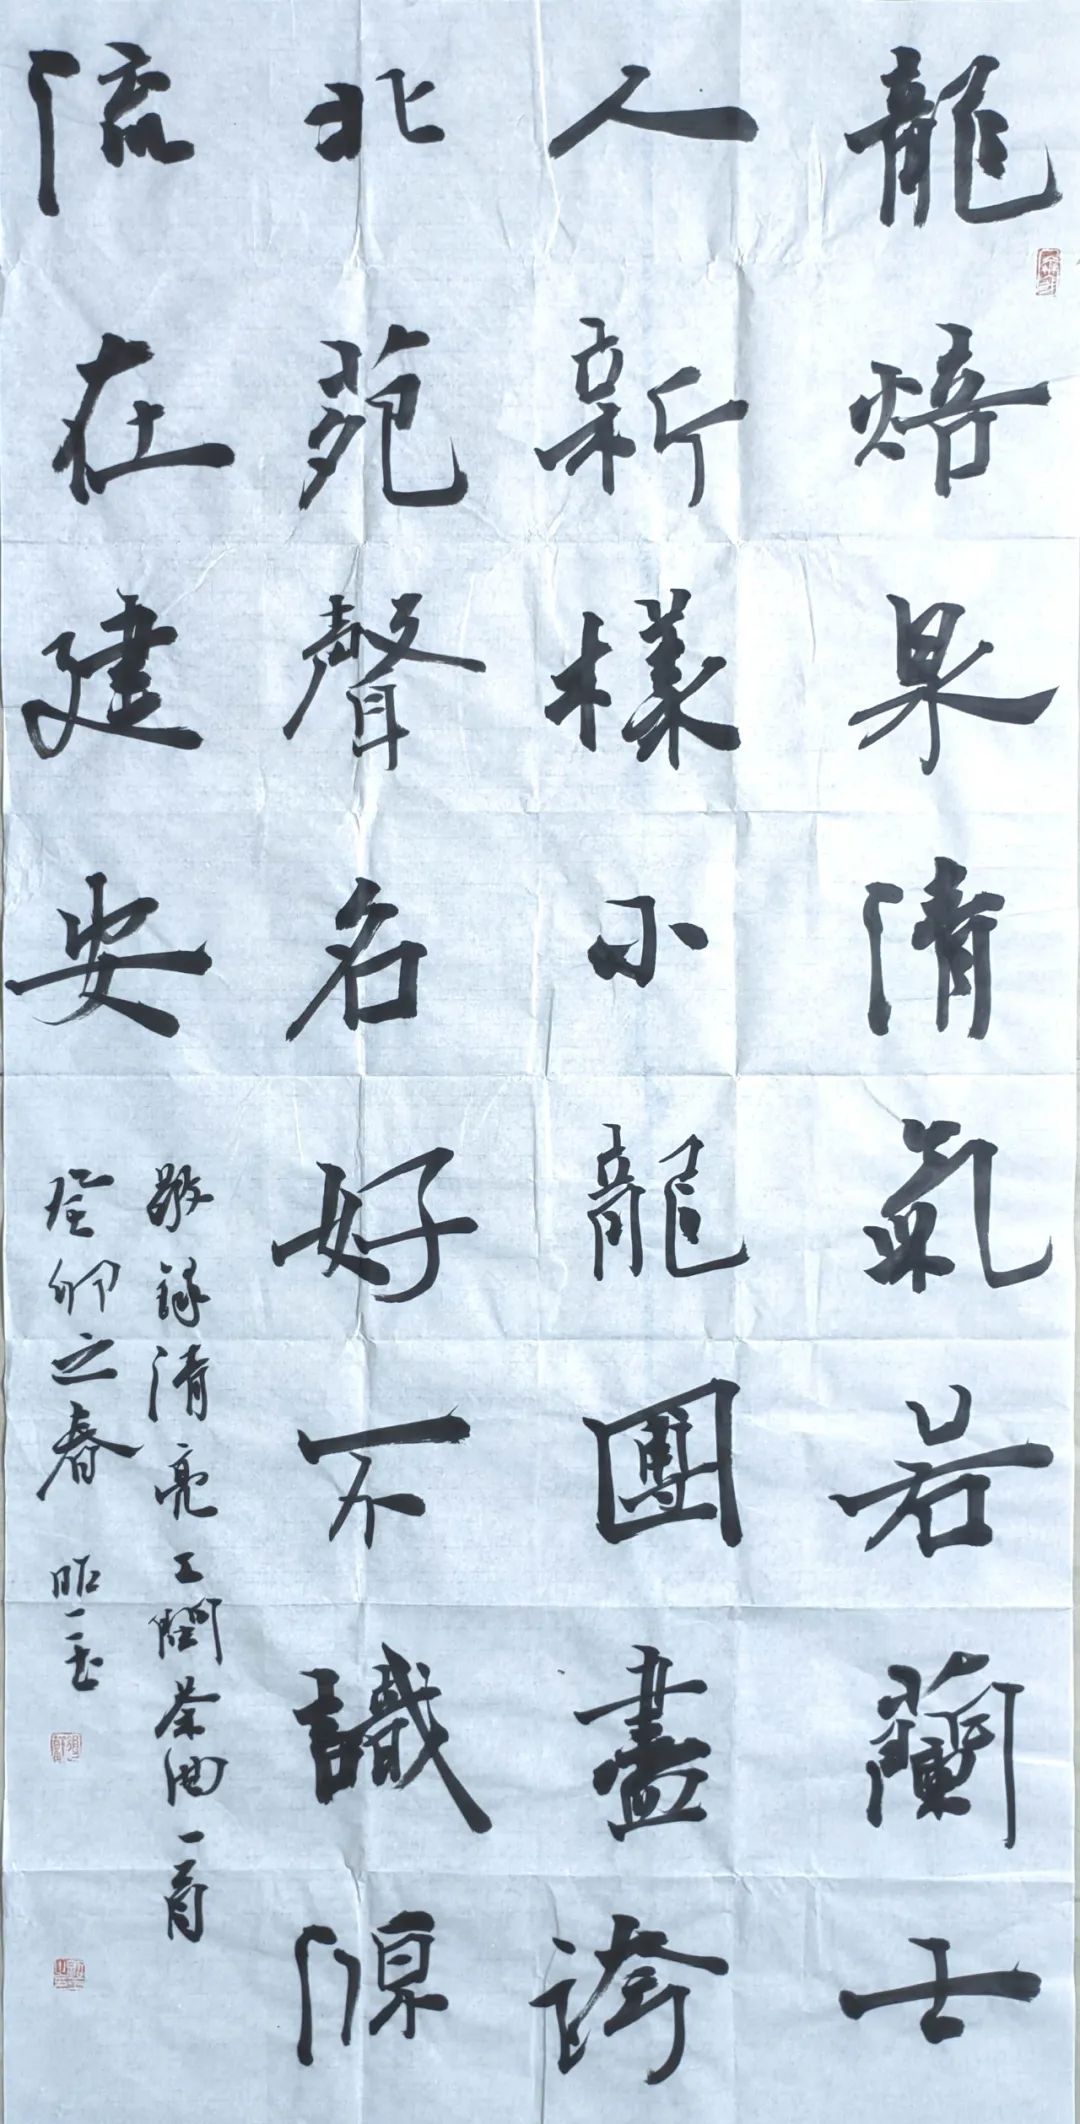 龍焙泉清氣若蘭士
人新樣小龍團盡誇
北苑聲名好不識源
流在建安
敬錄清亮工閩茶曲一首
癸卯之春 昭玉